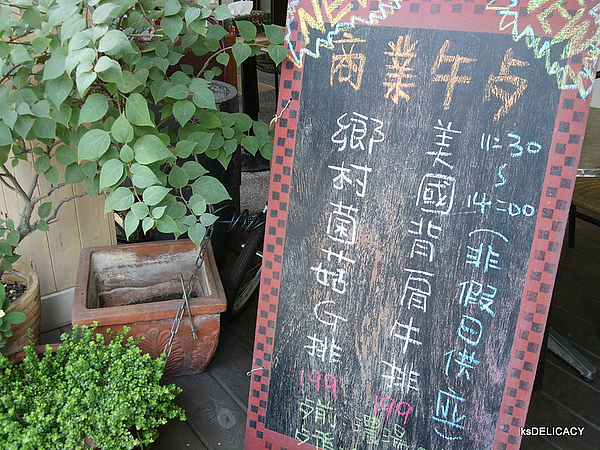 NEW
商業午点
11:30
~
14:00(非假日供应)
美國背肩牛排
199
鄉村菌菇G排
199
ksDELICACY